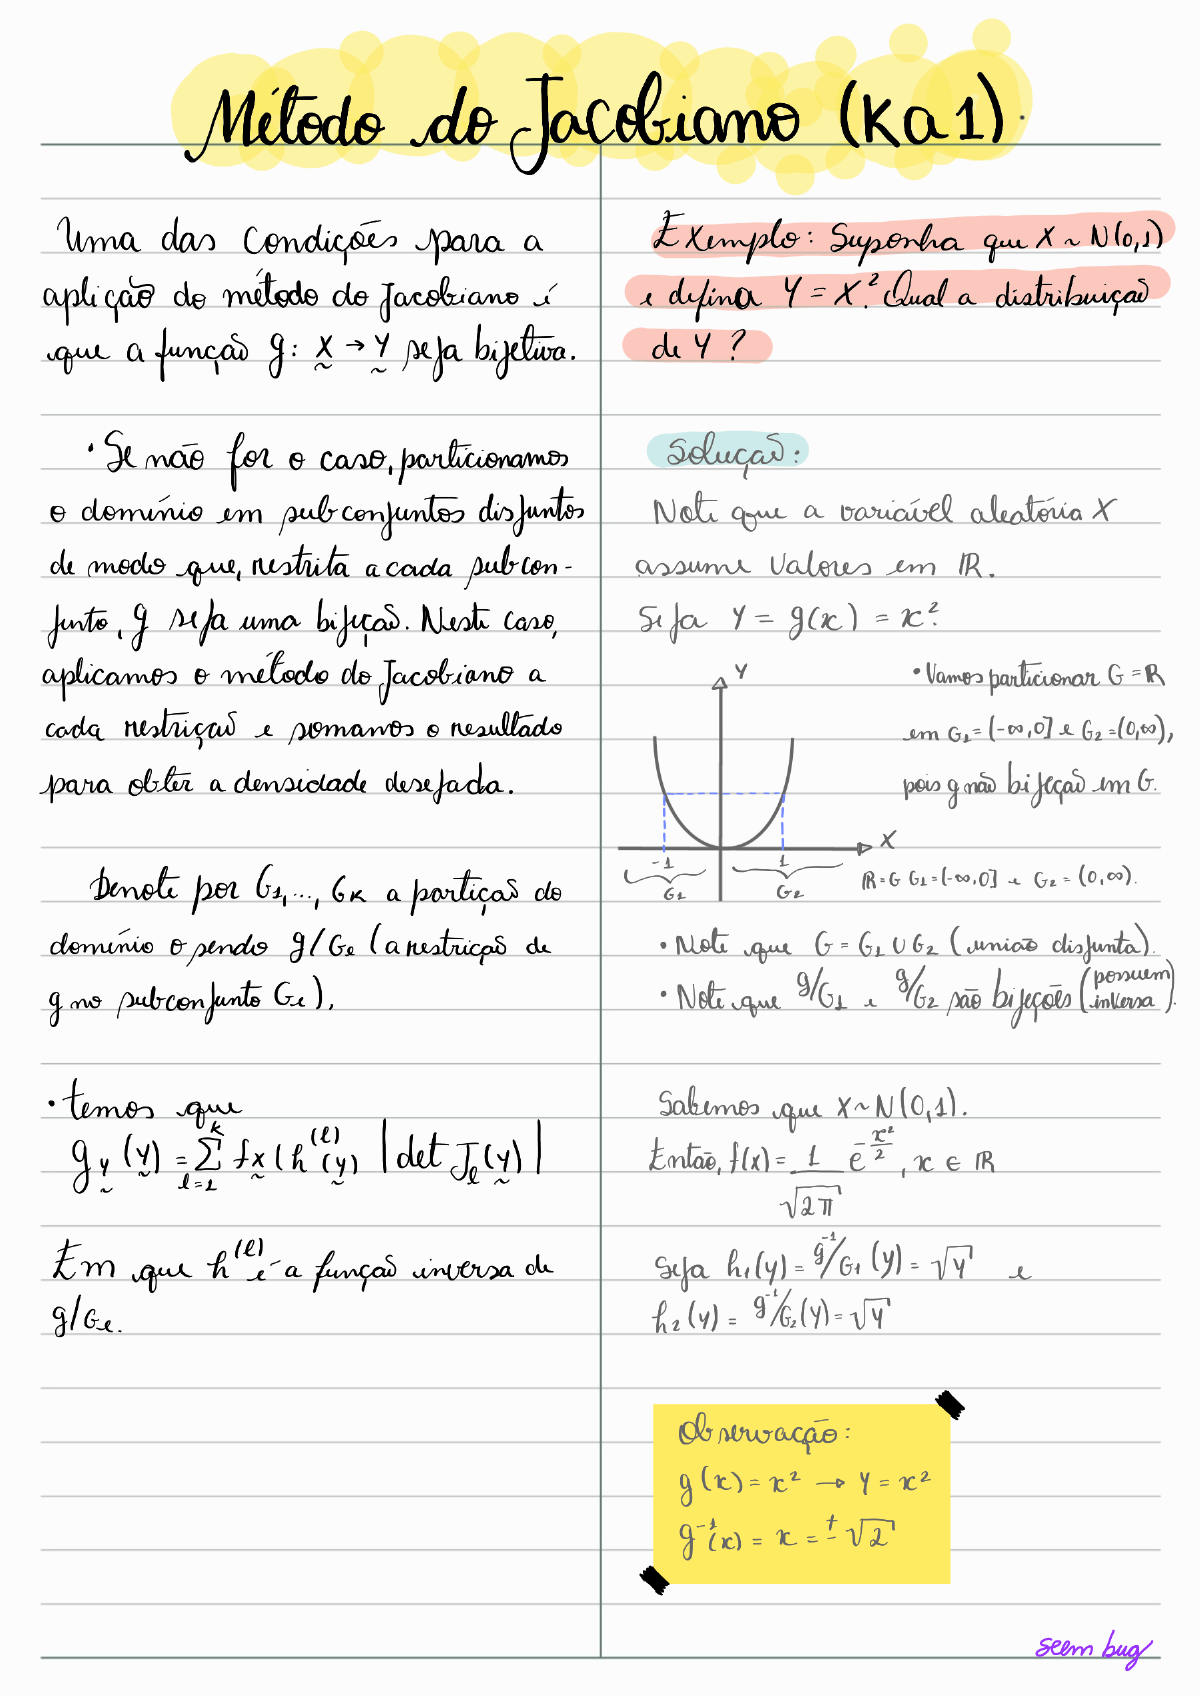 Método do Jacobiano (K a 1).
Uma das condições para a
aplição do método do Jacobiano é
que a função g: X → Y seja bijetiva.
• Se não for o caso, particionamos
o domínio em subconjuntos disjuntos
de modo que, restrita a cada subcon-
junto, g seja uma bijeção. Neste caso,
aplicamos o método do Jacobiano a
cada restrição e somamos o resultado
para obter a densidade desejada.
Denote por G1,..., GK a partição do
domínio o sendo g/Gℓ (a restrição de
g no subconjunto Gℓ),
• temos que
g_Y(y) = Σ_{ℓ=1}^{K} f_X(h^(ℓ)(y) |det J_ℓ(y)|
Em que h^(ℓ) é a função inversa de
g/Gℓ.
Exemplo: Suponha que X ~ N(0,1)
e defina Y = X². Qual a distribuição
de Y?
Solução:
Note que a variável aleatória X
assume valores em ℝ.
Seja Y = g(x) = x².
Y
• Vamos particionar G = ℝ
em G1 = (-∞,0] e G2 = (0,∞),
pois g não bijeção em G.
X
-1 1
G1 G2
ℝ = G G1 = (-∞,0] e G2 = (0,∞).
• Note que G = G1 ∪ G2 (união disjunta).
• Note que g/G1 e g/G2 são bijeções (possuem inversa).
Sabemos que X ~ N(0,1).
Então, f(x) = 1/√2π e^{-x²/2}, x ∈ ℝ
Seja h1(y) = g⁻¹/G1 (y) = √y e
h2(y) = g⁻¹/G2(y) = √y
Observação:
g(x) = x² → Y = x²
g⁻¹(x) = x = ±√2
seem bug